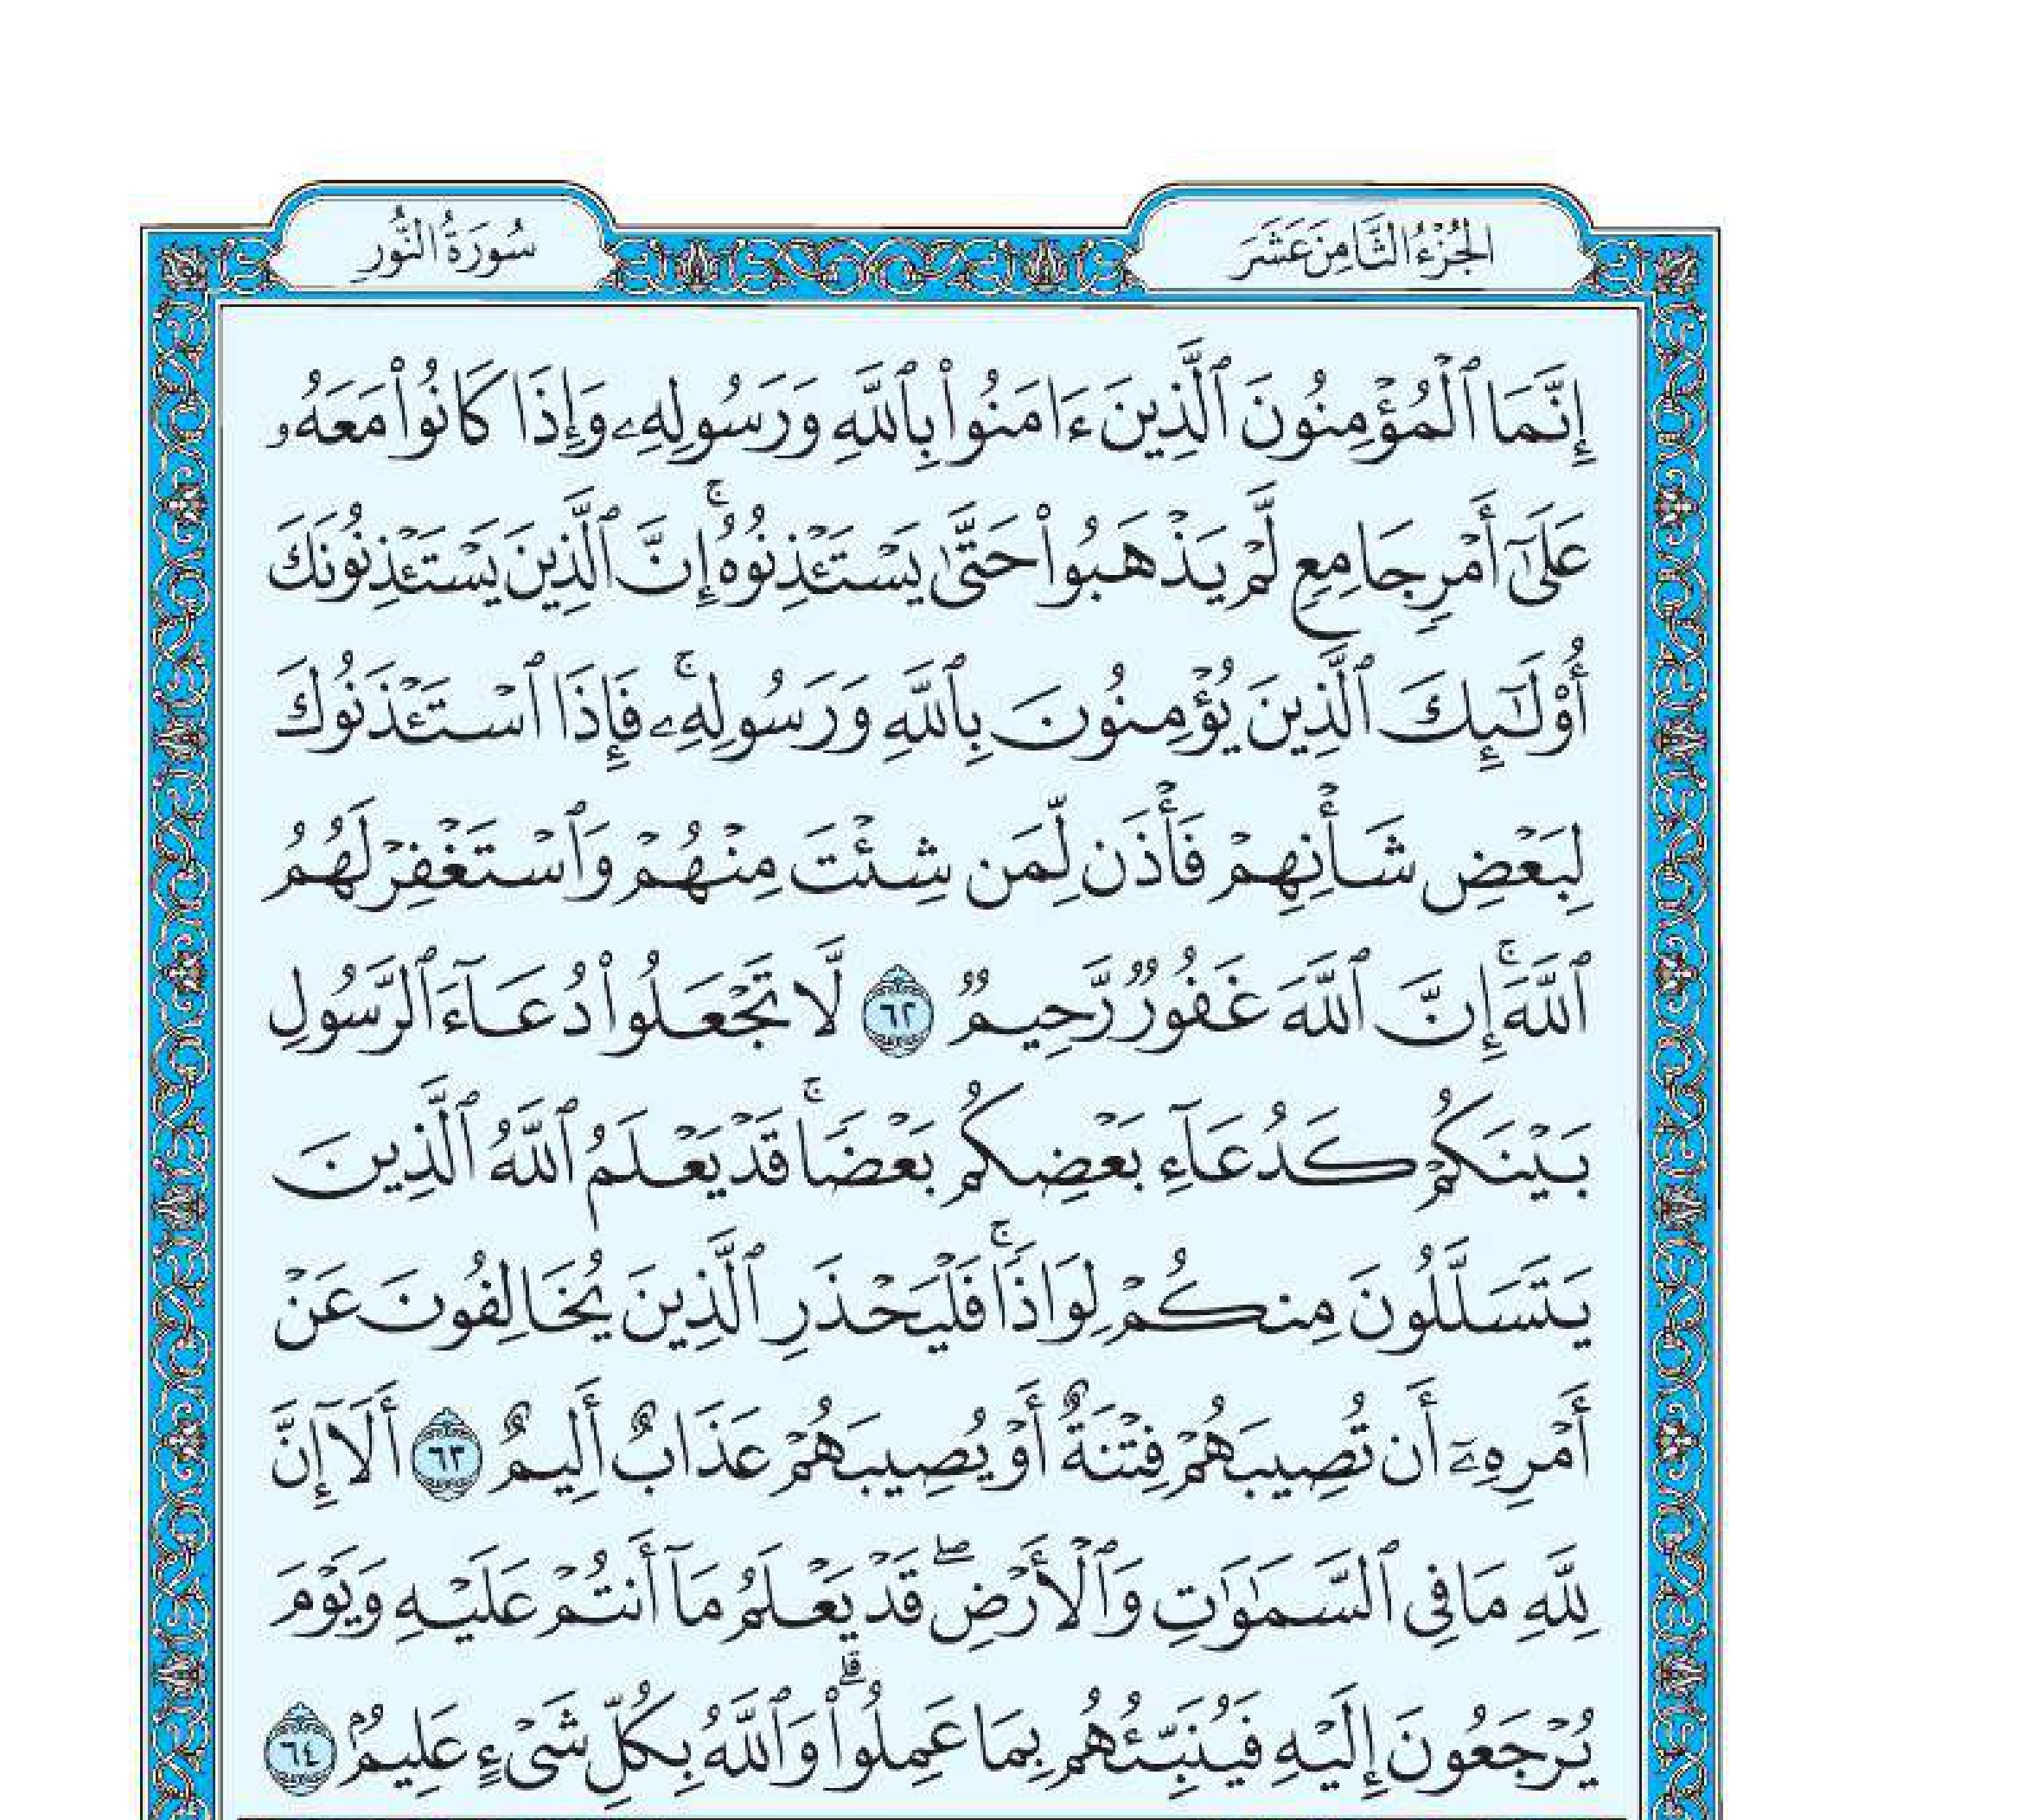 الجُزْءُ الثَّامِنَ عَشَرَ
سُورَةُ النُّور
إِنَّمَا ٱلْمُؤْمِنُونَ ٱلَّذِينَ ءَامَنُوا۟ بِٱللَّهِ وَرَسُولِهِۦ وَإِذَا كَانُوا۟ مَعَهُۥ
عَلَىٰٓ أَمْرٍ جَامِعٍ لَّمْ يَذْهَبُوا۟ حَتَّىٰ يَسْتَـْٔذِنُوهُ ۚ إِنَّ ٱلَّذِينَ يَسْتَـْٔذِنُونَكَ
أُو۟لَـٰٓئِكَ ٱلَّذِينَ يُؤْمِنُونَ بِٱللَّهِ وَرَسُولِهِۦ ۚ فَإِذَا ٱسْتَـْٔذَنُوكَ
لِبَعْضِ شَأْنِهِمْ فَأْذَن لِّمَن شِئْتَ مِنْهُمْ وَٱسْتَغْفِرْ لَهُمُ
ٱللَّهَ ۚ إِنَّ ٱللَّهَ غَفُورٌ رَّحِيمٌ ٦٢ لَّا تَجْعَلُوا۟ دُعَآءَ ٱلرَّسُولِ
بَيْنَكُمْ كَدُعَآءِ بَعْضِكُم بَعْضًا ۚ قَدْ يَعْلَمُ ٱللَّهُ ٱلَّذِينَ
يَتَسَلَّلُونَ مِنكُمْ لِوَاذًا ۚ فَلْيَحْذَرِ ٱلَّذِينَ يُخَالِفُونَ عَنْ
أَمْرِهِۦٓ أَن تُصِيبَهُمْ فِتْنَةٌ أَوْ يُصِيبَهُمْ عَذَابٌ أَلِيمٌ ٦٣ أَلَآ إِنَّ
لِلَّهِ مَا فِى ٱلسَّمَـٰوَٰتِ وَٱلْأَرْضِ ۖ قَدْ يَعْلَمُ مَآ أَنتُمْ عَلَيْهِ وَيَوْمَ
يُرْجَعُونَ إِلَيْهِ فَيُنَبِّئُهُم بِمَا عَمِلُوا۟ ۗ وَٱللَّهُ بِكُلِّ شَىْءٍ عَلِيمٌۢ ٦٤